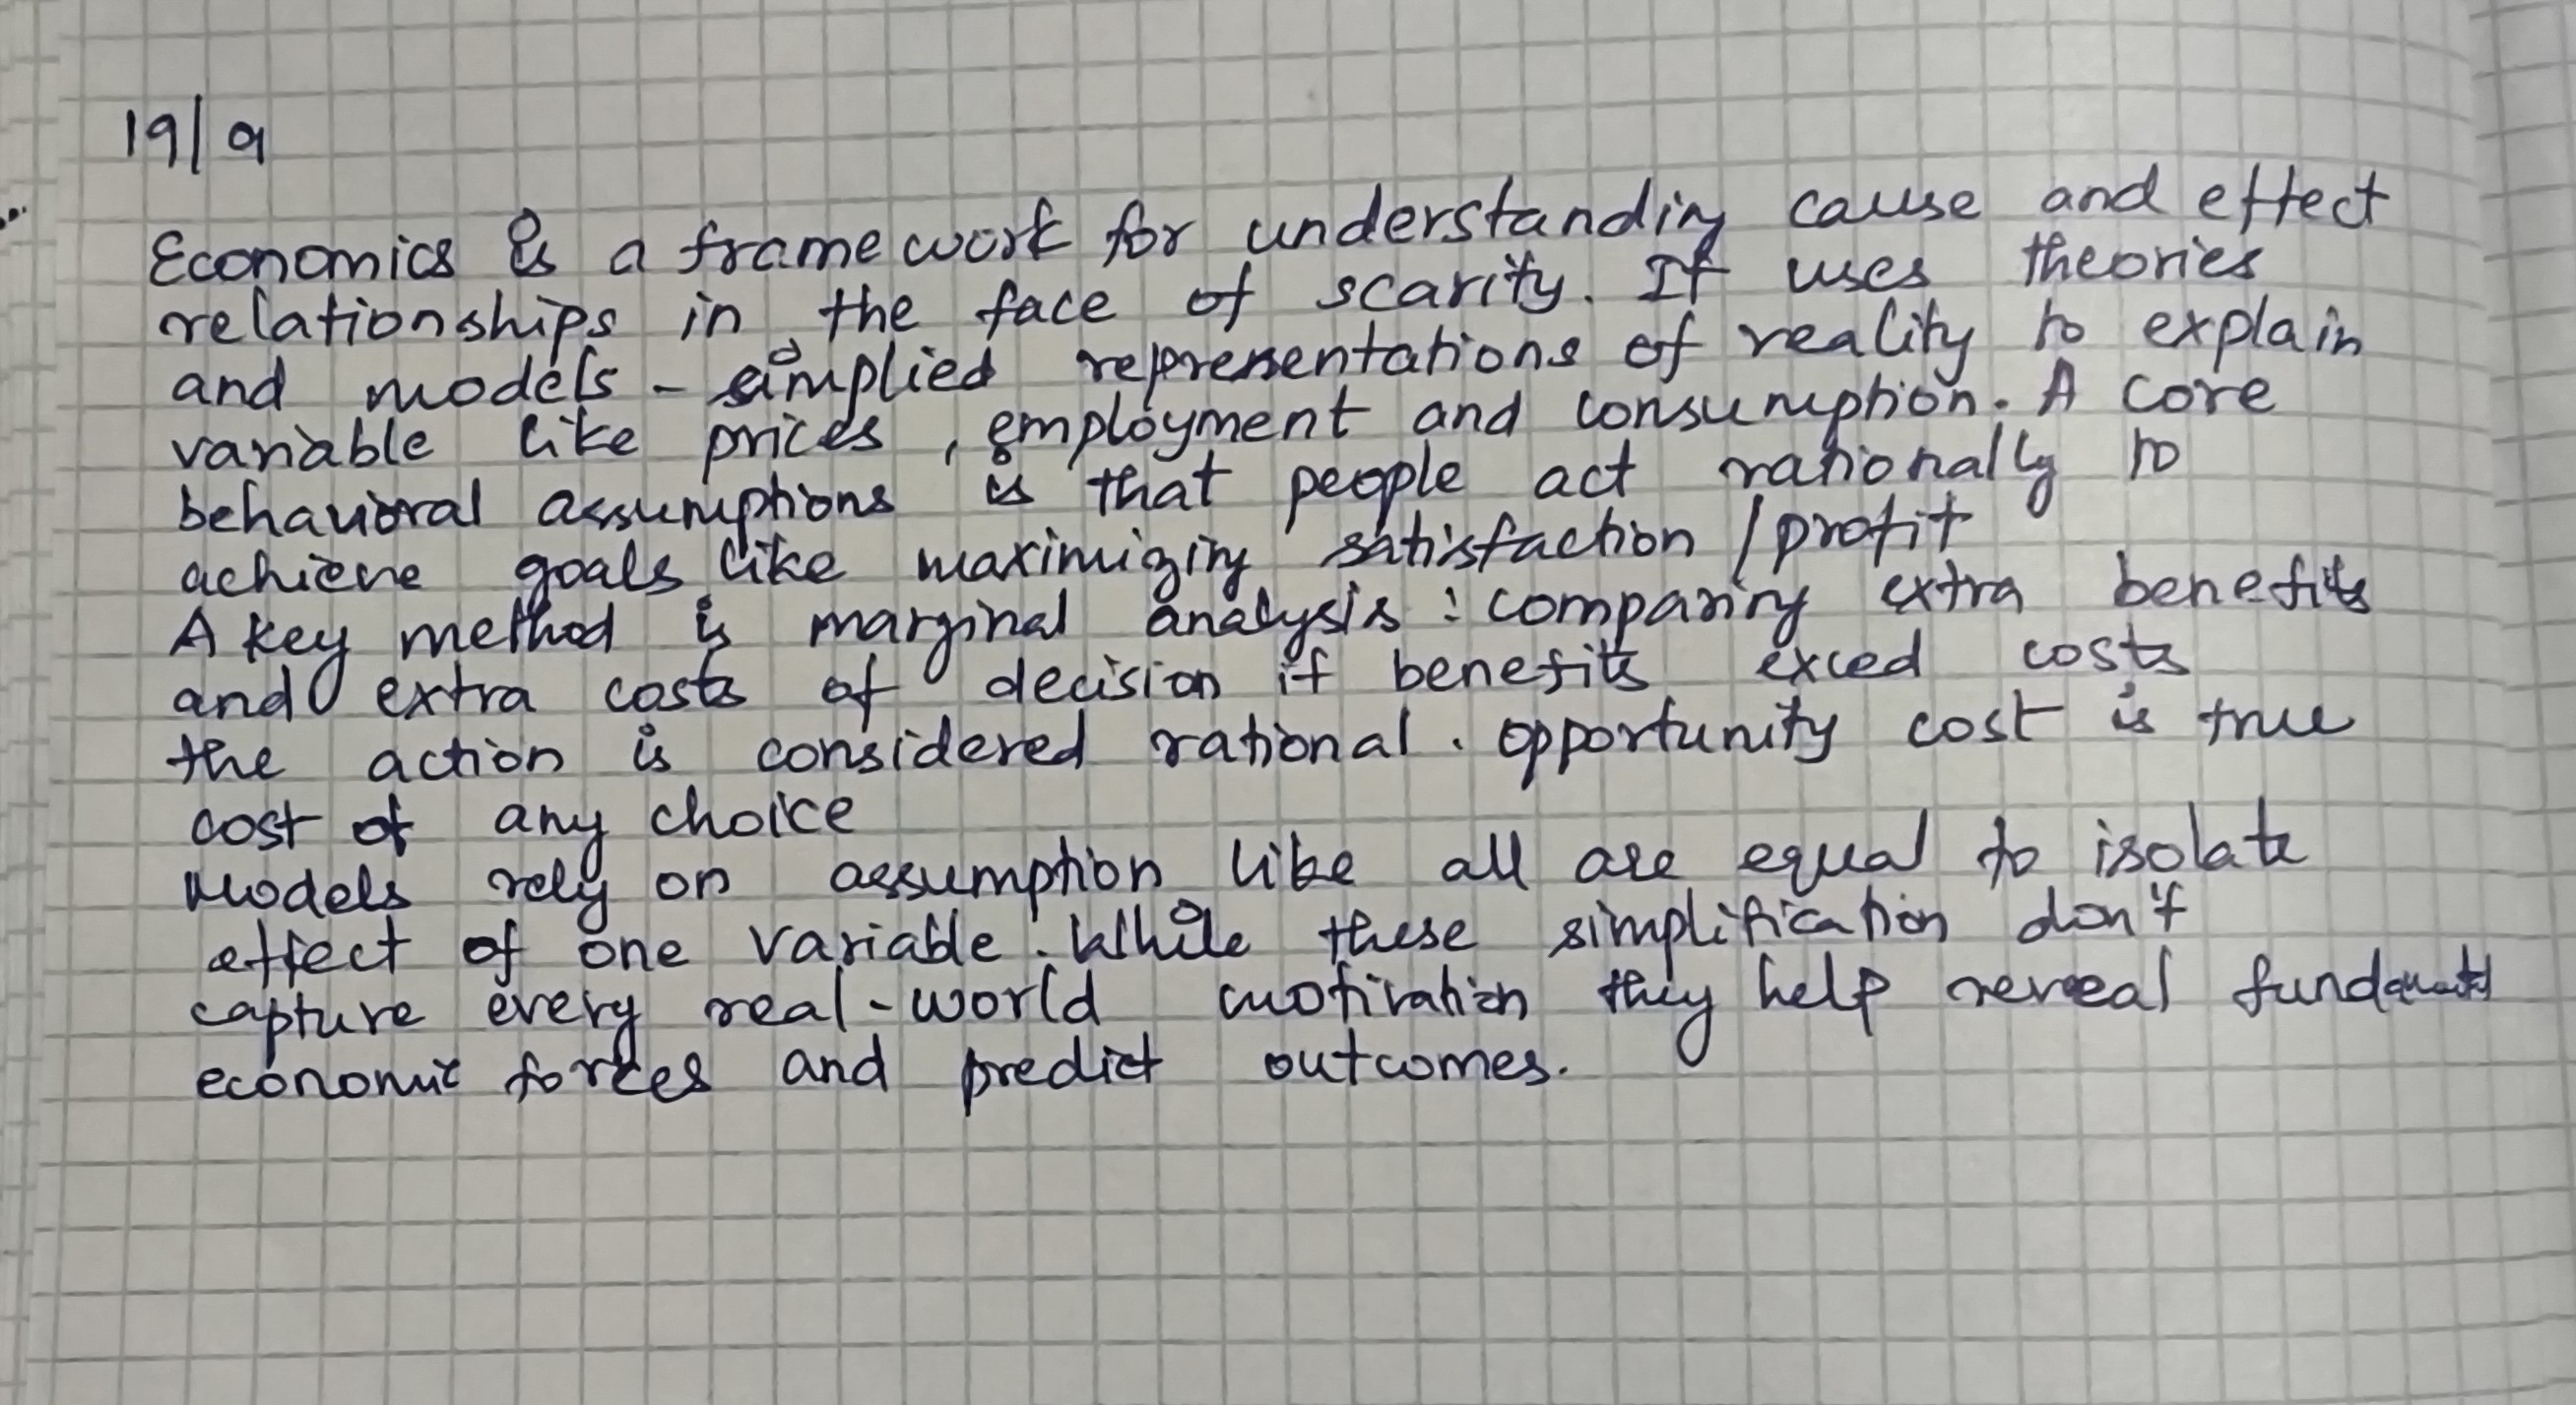 19/9
Economics is a framework for understanding cause and effect
relationships in the face of scarity. It uses theories
and models - simplied representations of reality to explain
variable like prices, employment and consumption. A core
behavioral assumptions is that people act rationally to
achieve goals like maximizing satisfaction / profit
A key method is marginal analysis : comparing extra benefits
and extra costs of decision if benefits exced costs
the action is considered rational. opportunity cost is true
cost of any choice
Models rely on assumption like all are equal to isolate
effect of one variable. While these simplification don't
capture every real-world motivation they help reveal
economic forces and predict outcomes.